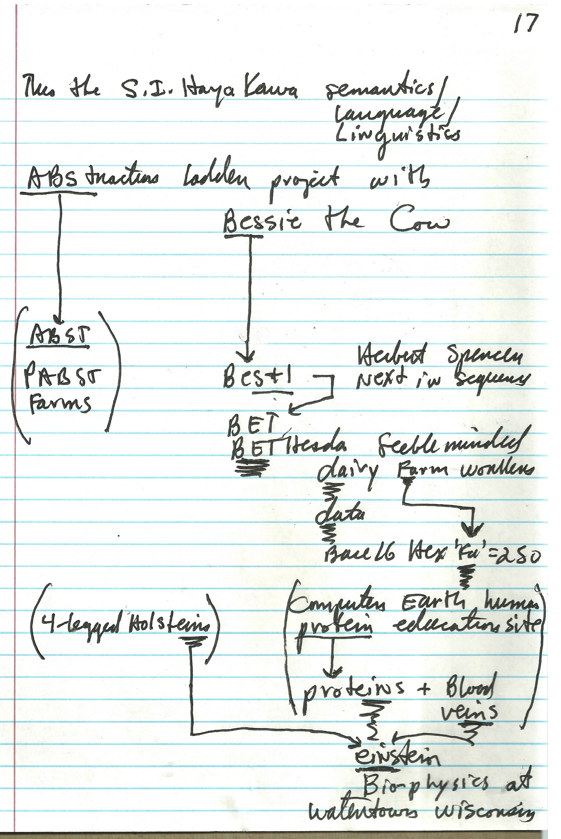 17
Thus the S.I. Hayakawa semantics/
Language/
Linguistics
ABStractions ladder project with
Bessie the Cow
ABST
PABST
Farms
Best1
Herbert Spencer
Next in sequence
BET
BETHesda feebleminded
dairy Farm workers
data
Base16 Hex 'Fa' = 250
(4-legged Holsteins)
(Computer Earth human
protein education site)
proteins + Blood
veins
einstein
Biophysics at
Watertown Wisconsin